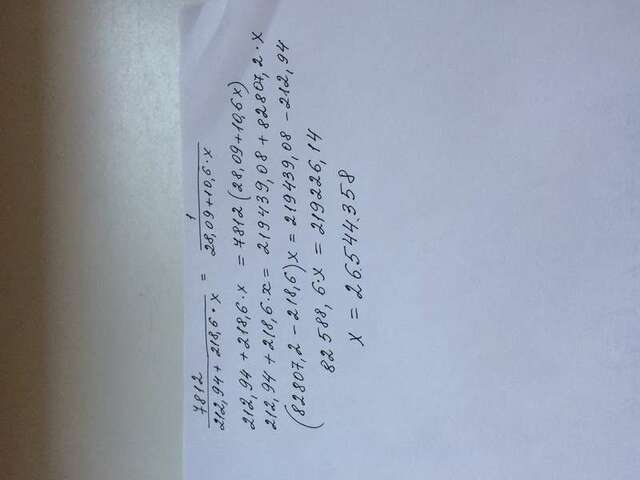 7812 / 212,94 + 218,6 · x = 1 / 28,09+10,6 · x
212,94 + 218,6 · x = 7812 (28,09+10,6x)
212,94 + 218,6 · x = 219439,08 + 82807,2 · x
(82807,2 - 218,6)x = 219439,08 - 212,94
82588,6 · x = 219226,14
x = 26.544.358